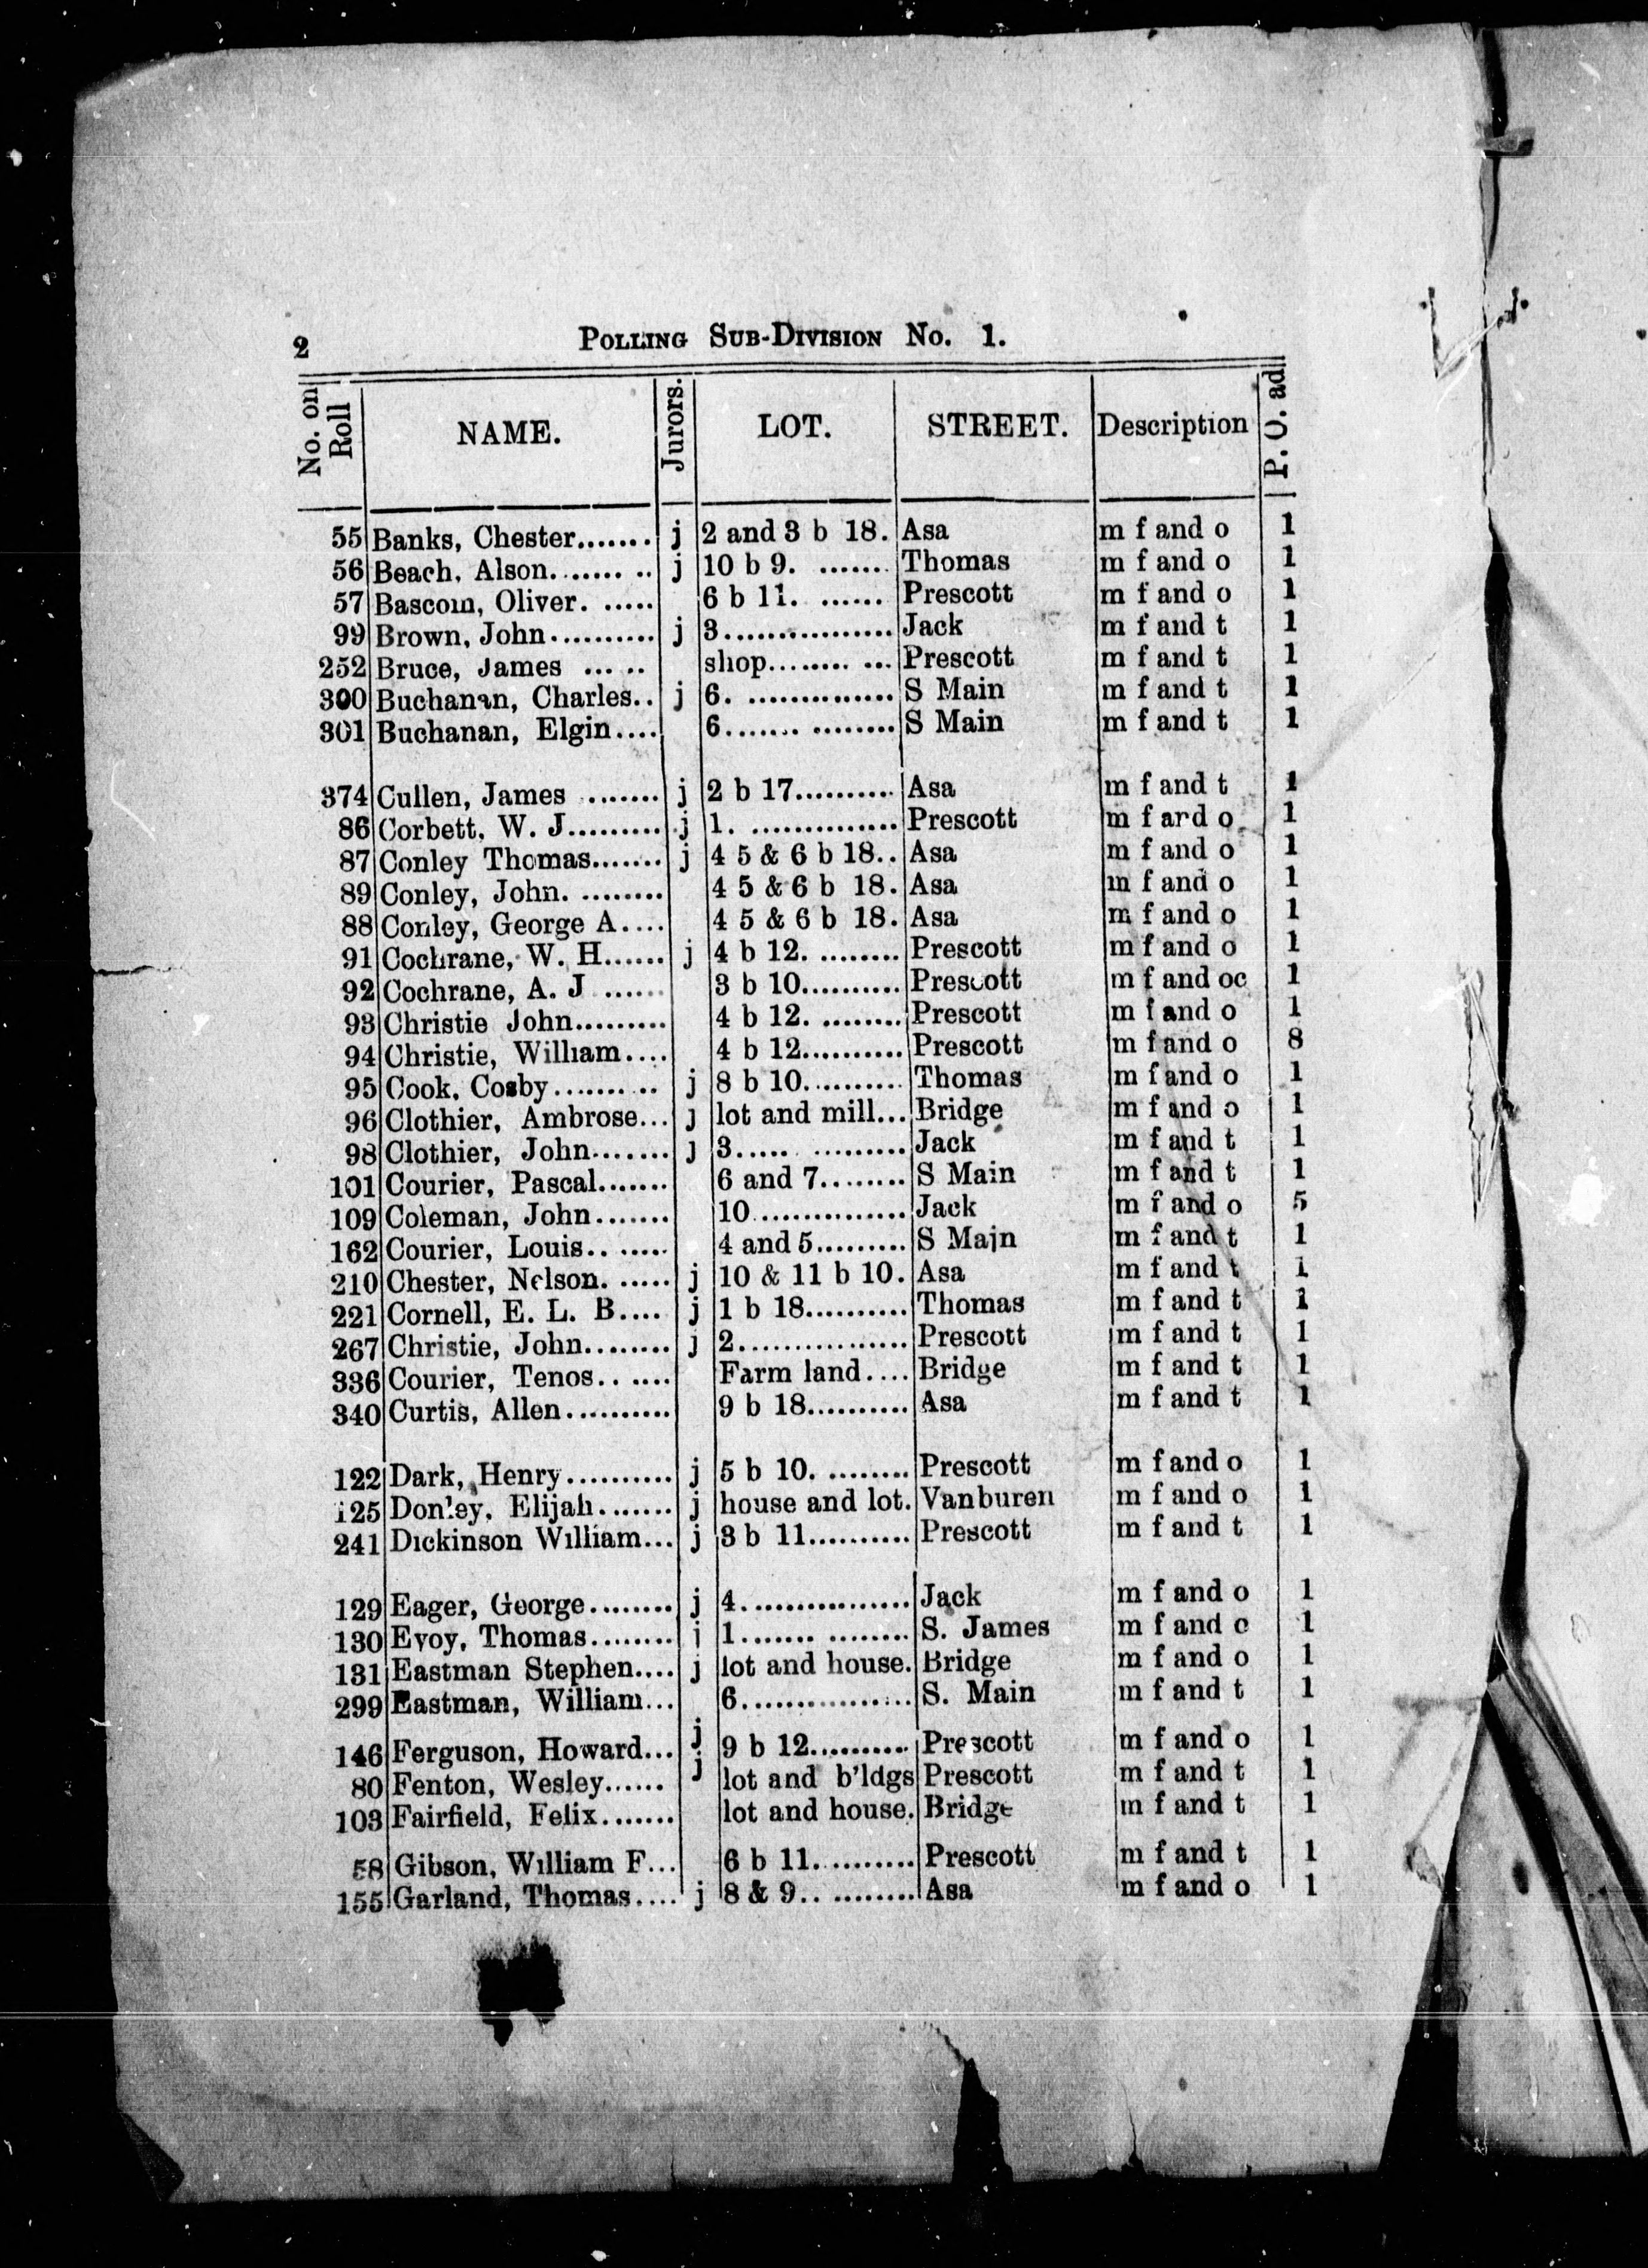 2 POLLING SUB-DIVISION No. 1.
No. on Roll NAME. Jurors. LOT. STREET. Description P. O. ad
55 Banks, Chester....... j 2 and 3 b 18. Asa m f and o 1
56 Beach, Alson....... .. j 10 b 9. ....... Thomas m f and o 1
57 Bascom, Oliver. ..... 6 b 11. ...... Prescott m f and o 1
99 Brown, John.......... j 3................ Jack m f and t 1
252 Bruce, James ... .. shop........ ... Prescott m f and t 1
300 Buchanan, Charles.. j 6. .............. S Main m f and t 1
301 Buchanan, Elgin.... 6....... ........ S Main m f and t 1
374 Cullen, James ....... j 2 b 17.......... Asa m f and t 1
86 Corbett, W. J......... j 1. .............. Prescott m f and o 1
87 Conley Thomas....... j 4 5 & 6 b 18.. Asa m f and o 1
89 Conley, John. ........ 4 5 & 6 b 18. Asa m f and o 1
88 Conley, George A.... 4 5 & 6 b 18. Asa m f and o 1
91 Cochrane, W. H...... j 4 b 12. ........ Prescott m f and o 1
92 Cochrane, A. J ...... 3 b 10.......... Prescott m f and oc 1
93 Christie John......... 4 b 12. ........ Prescott m f and o 1
94 Christie, William.... 4 b 12.......... Prescott m f and o 8
95 Cook, Cosby........ .. j 8 b 10.......... Thomas m f and o 1
96 Clothier, Ambrose... j lot and mill... Bridge m f and o 1
98 Clothier, John....... j 3..... ......... Jack m f and t 1
101 Courier, Pascal....... 6 and 7........ S Main m f and t 1
109 Coleman, John....... 10............... Jack m f and o 5
162 Courier, Louis.. ..... 4 and 5......... S Main m f and t 1
210 Chester, Nelson. ..... j 10 & 11 b 10. Asa m f and t 1
221 Cornell, E. L. B.... j 1 b 18.......... Thomas m f and t 1
267 Christie, John........ j 2................ Prescott m f and t 1
336 Courier, Tenos.. .... Farm land.... Bridge m f and t 1
340 Curtis, Allen.......... 9 b 18.......... Asa m f and t 1
122 Dark, Henry.......... j 5 b 10. ........ Prescott m f and o 1
125 Donley, Elijah....... j house and lot. Vanburen m f and o 1
241 Dickinson William... j 3 b 11.......... Prescott m f and t 1
129 Eager, George........ j 4................ Jack m f and o 1
130 Evoy, Thomas........ j 1....... ........ S. James m f and o 1
131 Eastman Stephen.... j lot and house. Bridge m f and o 1
299 Eastman, William... 6................ S. Main m f and t 1
146 Ferguson, Howard... j 9 b 12.......... Prescott m f and o 1
80 Fenton, Wesley...... j lot and b'ldgs Prescott m f and t 1
103 Fairfield, Felix....... lot and house. Bridge m f and t 1
58 Gibson, William F... 6 b 11.......... Prescott m f and t 1
155 Garland, Thomas.... j 8 & 9.. ........ Asa m f and o 1